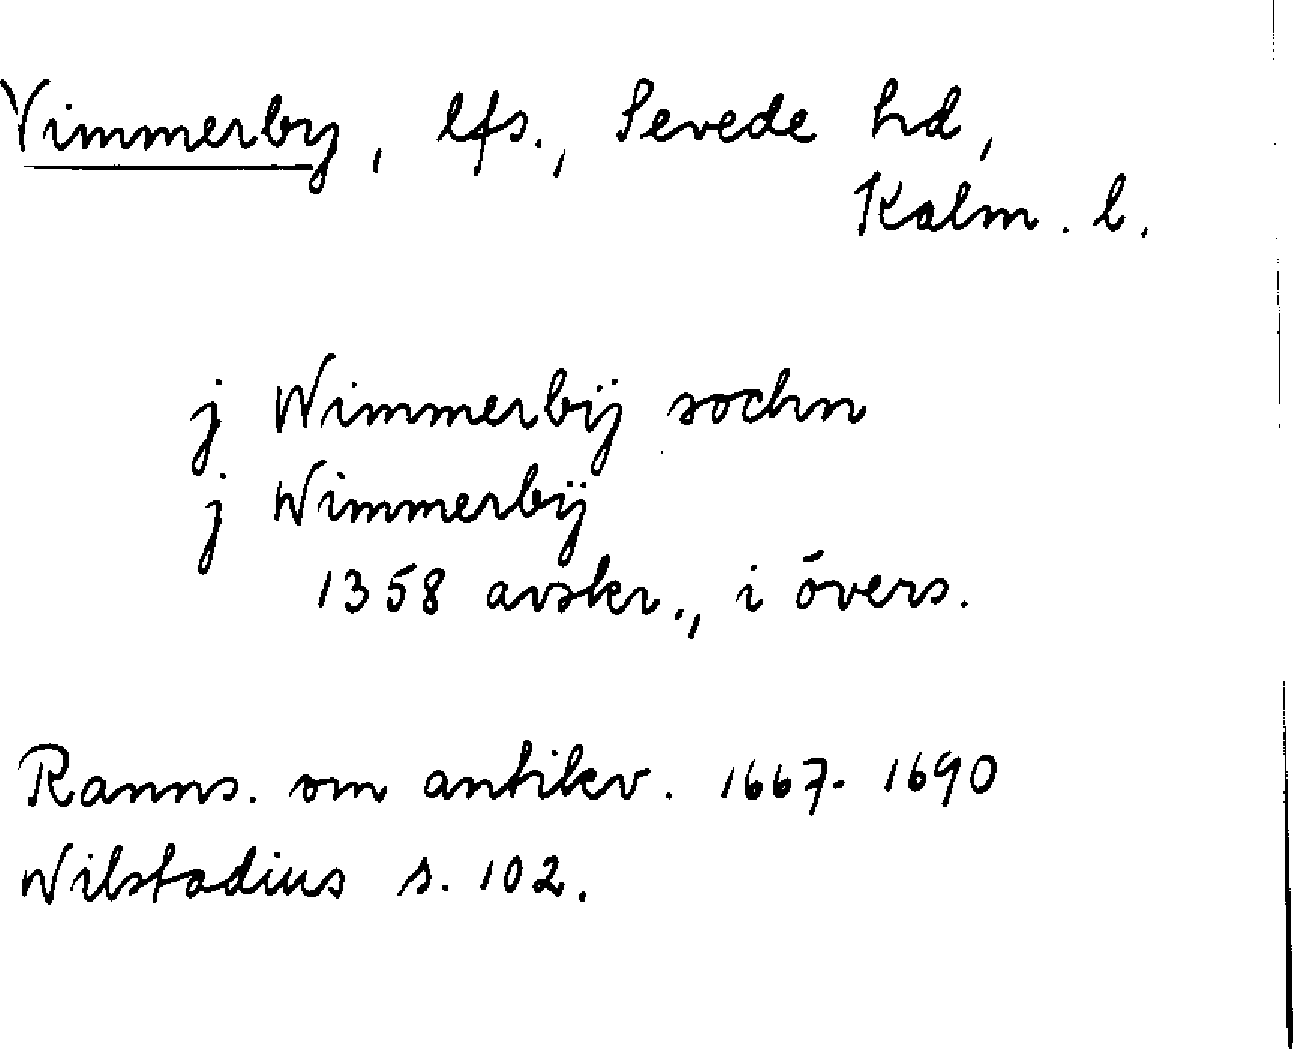 Vimmerby, lfs., Sevede hd,
Kalm. l.
j Wimmerbÿ sochn
j Wimmerbÿ
1358 avskr., i övers.
Ranns. om antikv. 1667-1690
Wilstadius s. 102.